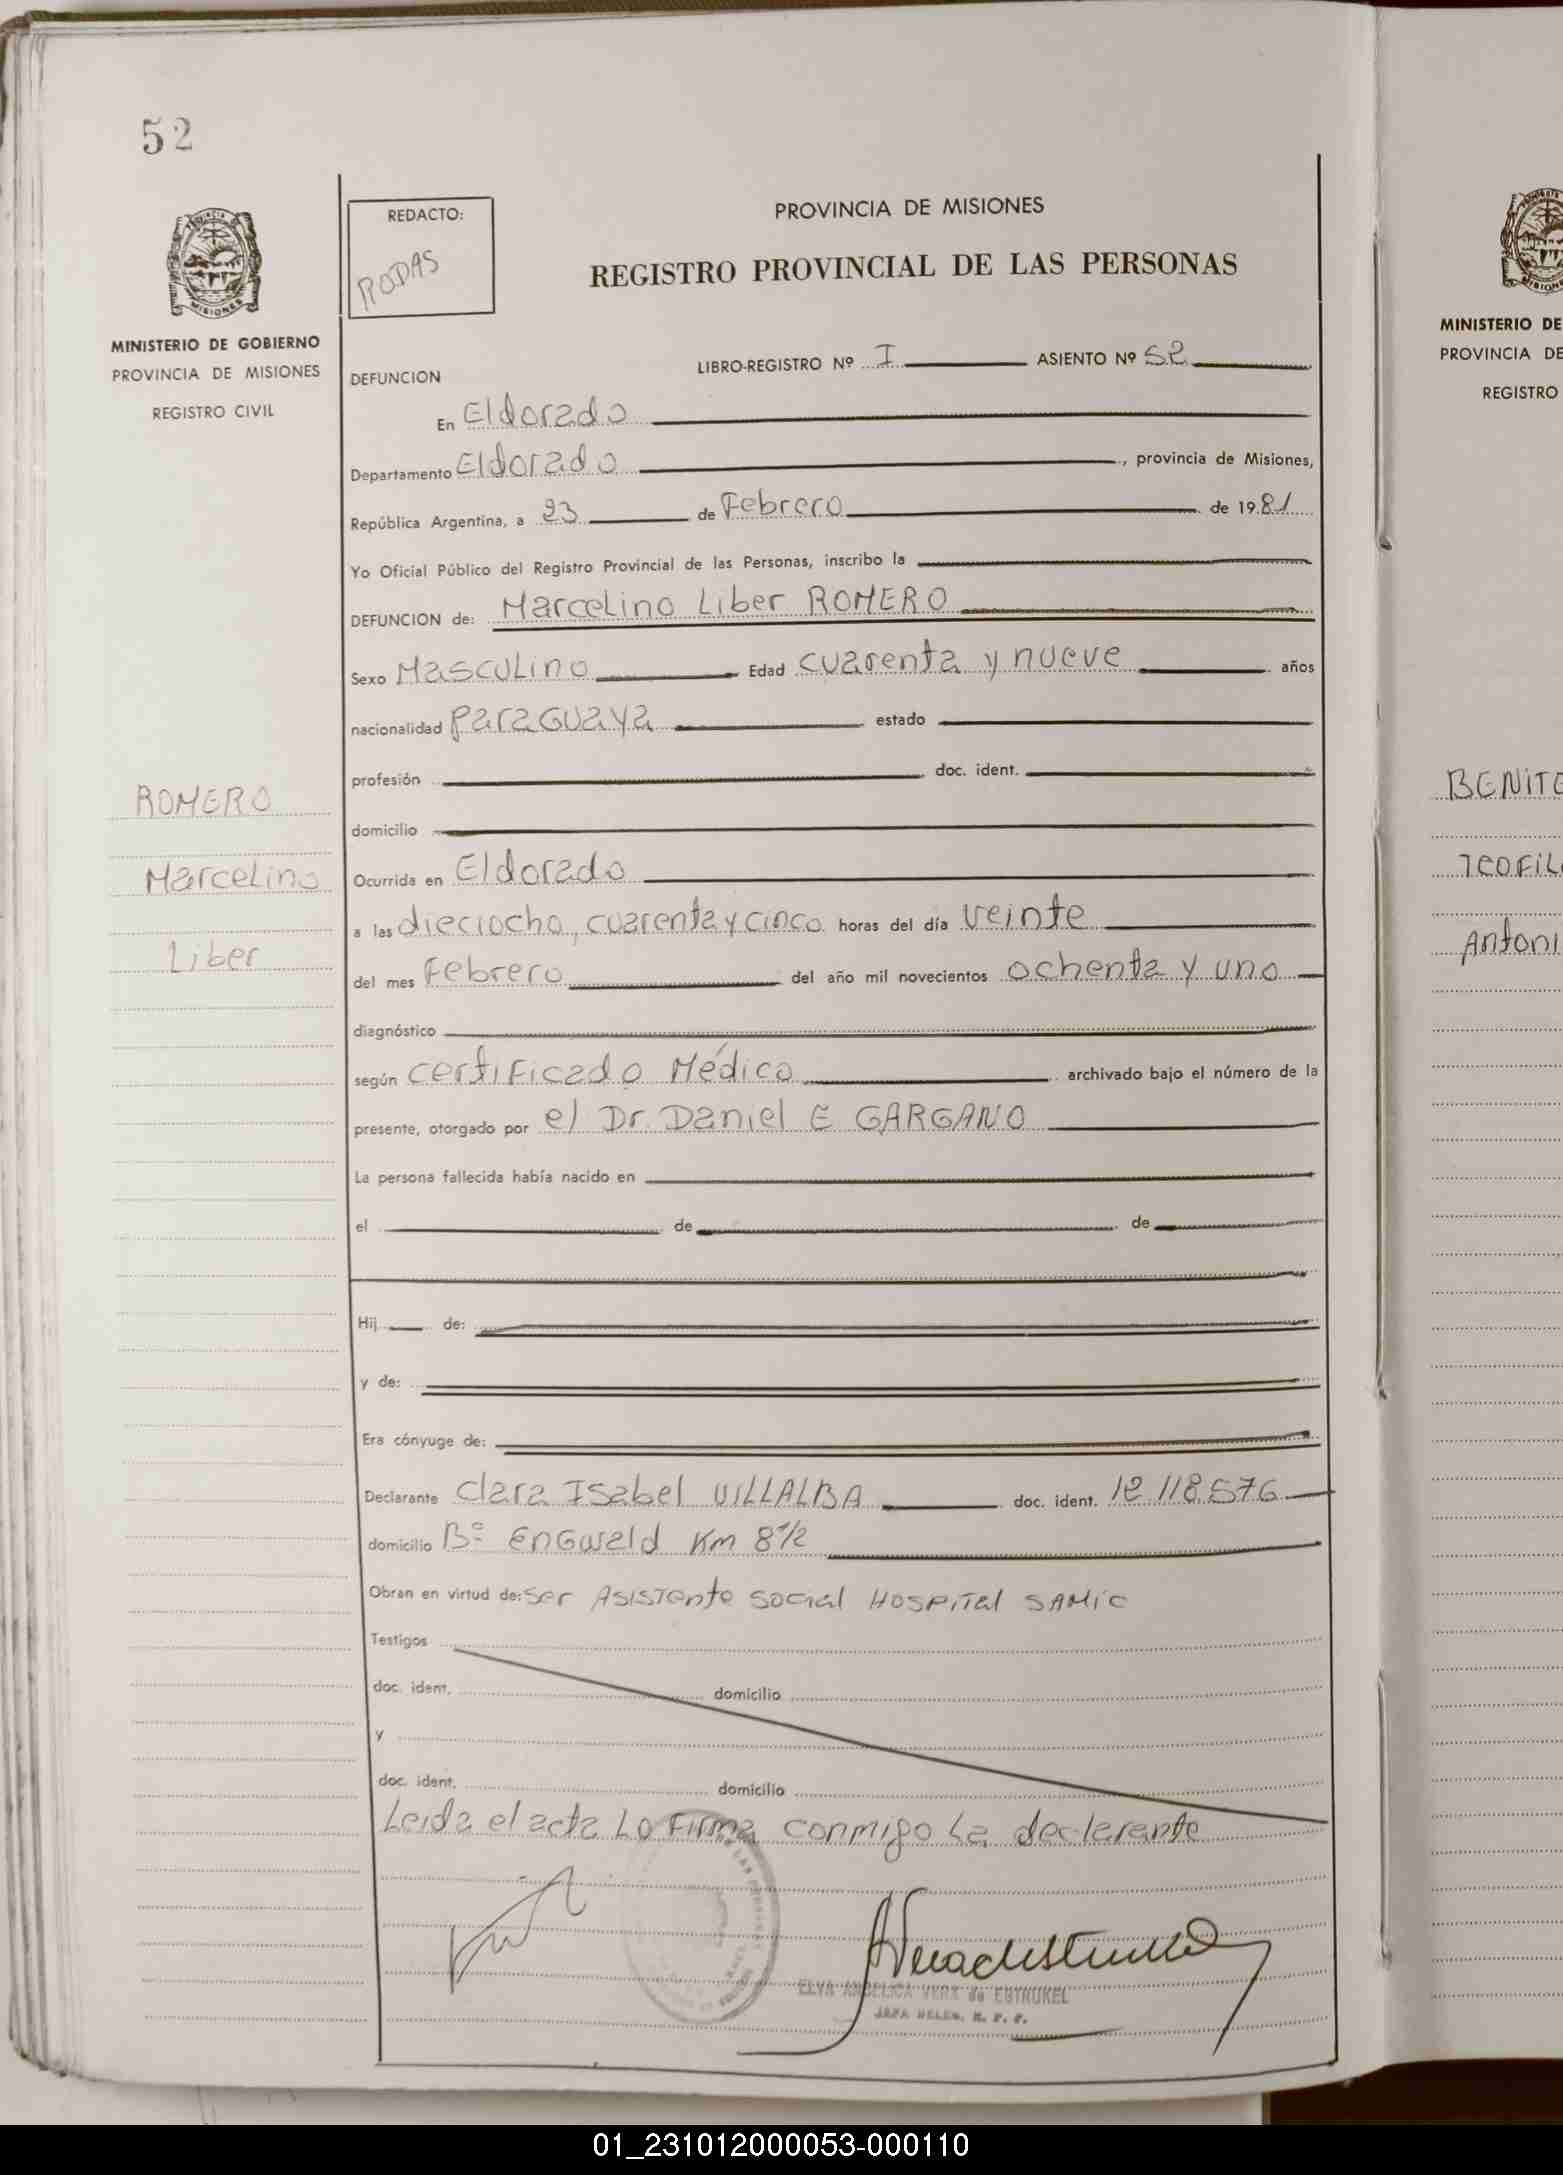 52
REDACTO:
RODAS
PROVINCIA DE MISIONES
REGISTRO PROVINCIAL DE LAS PERSONAS
MINISTERIO DE GOBIERNO
PROVINCIA DE MISIONES
REGISTRO CIVIL
LIBRO-REGISTRO Nº I ASIENTO Nº 52
DEFUNCION
En Eldorado
Departamento Eldorado, provincia de Misiones,
República Argentina, a 23 de Febrero de 1981
Yo Oficial Público del Registro Provincial de las Personas, inscribo la
DEFUNCION de: Marcelino Liber ROMERO
Sexo Masculino Edad cuarenta y nueve años
nacionalidad paraguaya estado
profesión doc. ident.
domicilio
ROMERO
Marcelino
Liber
Ocurrida en Eldorado
a las dieciocho, cuarenta y cinco horas del día veinte
del mes Febrero del año mil novecientos ochenta y uno
diagnóstico
según certificado Médico archivado bajo el número de la
presente, otorgado por el Dr. Daniel E GARGANO
La persona fallecida había nacido en
el de de
Hij de:
y de:
Era cónyuge de:
Declarante Clara Isabel VILLALBA doc. ident. 12.118.576
domicilio Bº Enguald Km 8½
Obran en virtud de: Ser Asistente Social Hospital SAMIC
Testigos
doc. ident. domicilio
y
doc. ident. domicilio
Leida el acta Lo Firma conmigo La declarante
ELVA ANGELICA VERA de
MINISTERIO DE
PROVINCIA DE
REGISTRO
BENITE
TEOFIL
Antoni
01_231012000053-000110